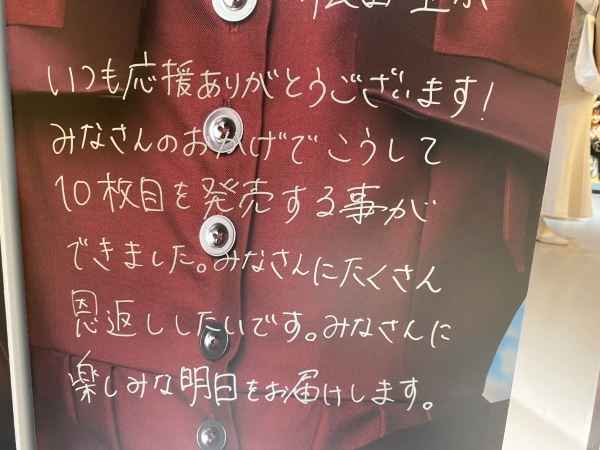 いつも応援ありがとうございます!
みなさんのおかげでこうして
10枚目を発売する事が
できました。みなさんにたくさん
恩返ししたいです。みなさんに
楽しみな明日をお届けします。